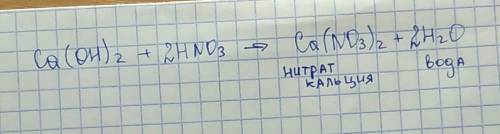 Ca(OH)2 + 2HNO3 → Ca(NO3)2 + 2H2O
нитрат кальция вода